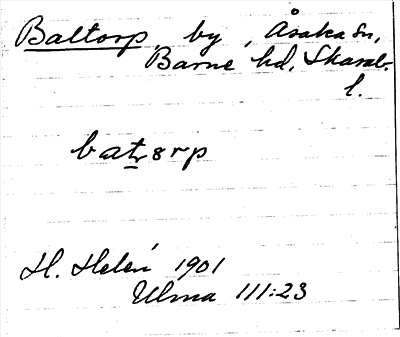 Baltorp, by, Åsaka sn,
Barne hd, Skarab.
l.
batr8rp
H. Helén 1901
Ulma 111:23